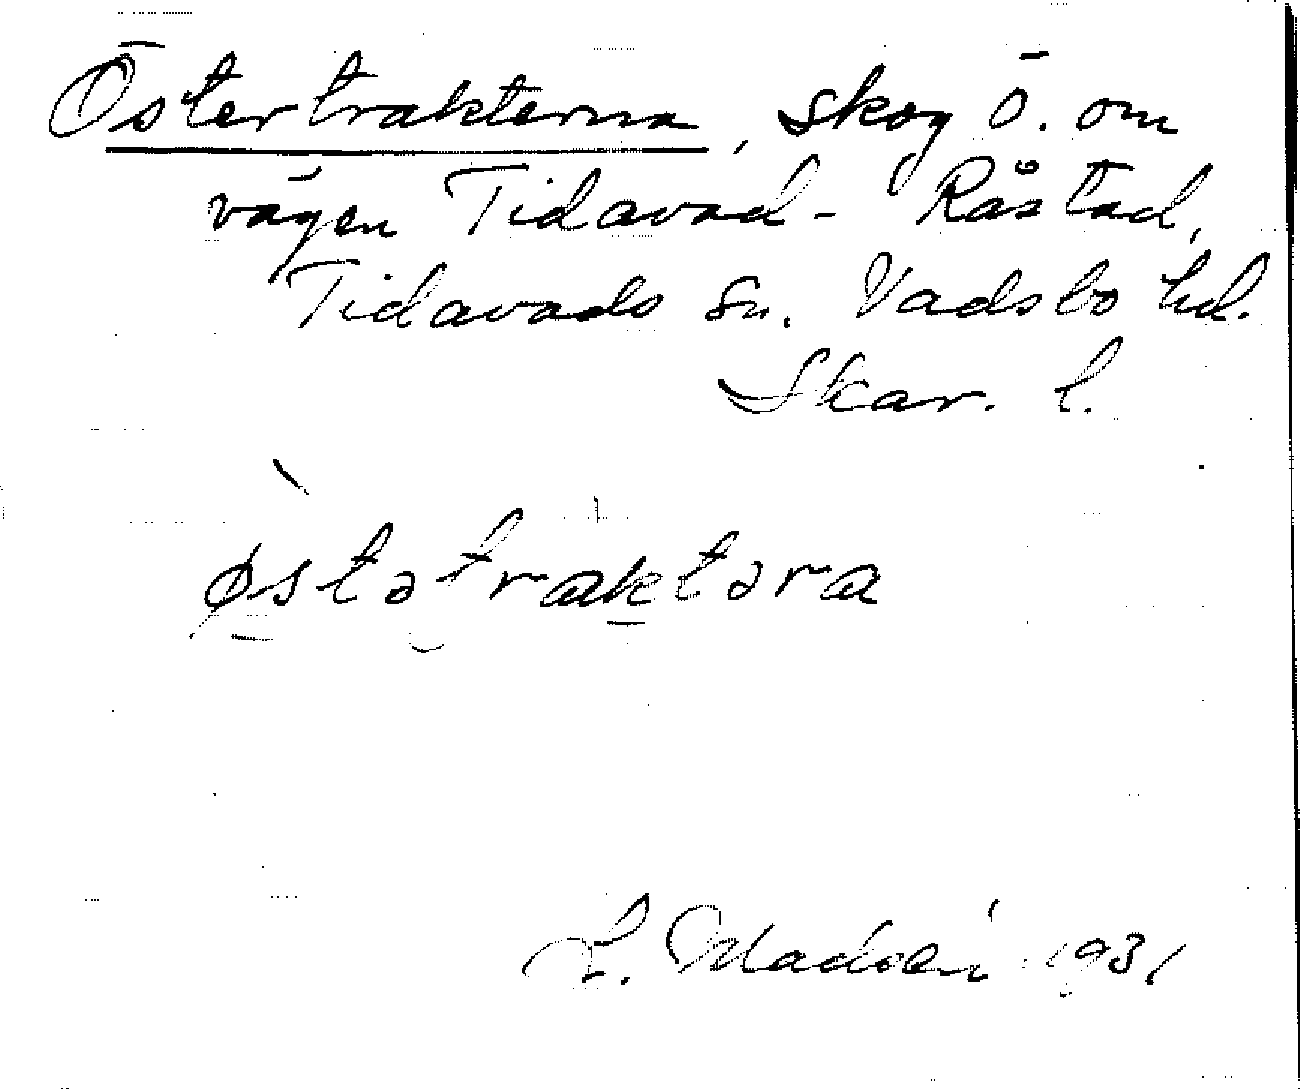 Östertrakterna, skog Ö. om
vägen Tidavad - Råstad,
Tidavads sn. Vadsbo hd.
Skar. l.
østətraktəra
1931